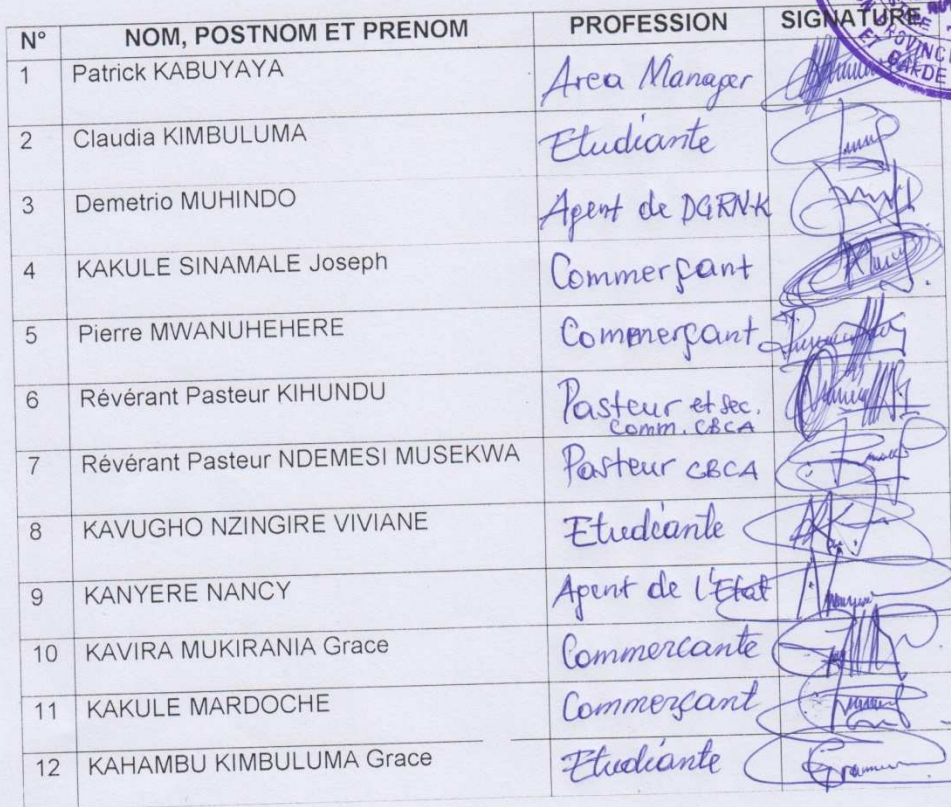 N° NOM, POSTNOM ET PRENOM PROFESSION SIGNATURE
1 Patrick KABUYAYA Area Manager
2 Claudia KIMBULUMA Etudiante
3 Demetrio MUHINDO Agent de DGRN-K
4 KAKULE SINAMALE Joseph Commerçant
5 Pierre MWANUHEHERE Commerçant
6 Révérant Pasteur KIHUNDU Pasteur et sec.
Comm. CBCA
7 Révérant Pasteur NDEMESI MUSEKWA Pasteur CBCA
8 KAVUGHO NZINGIRE VIVIANE Etudiante
9 KANYERE NANCY Agent de l'Etat
10 KAVIRA MUKIRANIA Grace Commercante
11 KAKULE MARDOCHE Commerçant
12 KAHAMBU KIMBULUMA Grace Etudiante